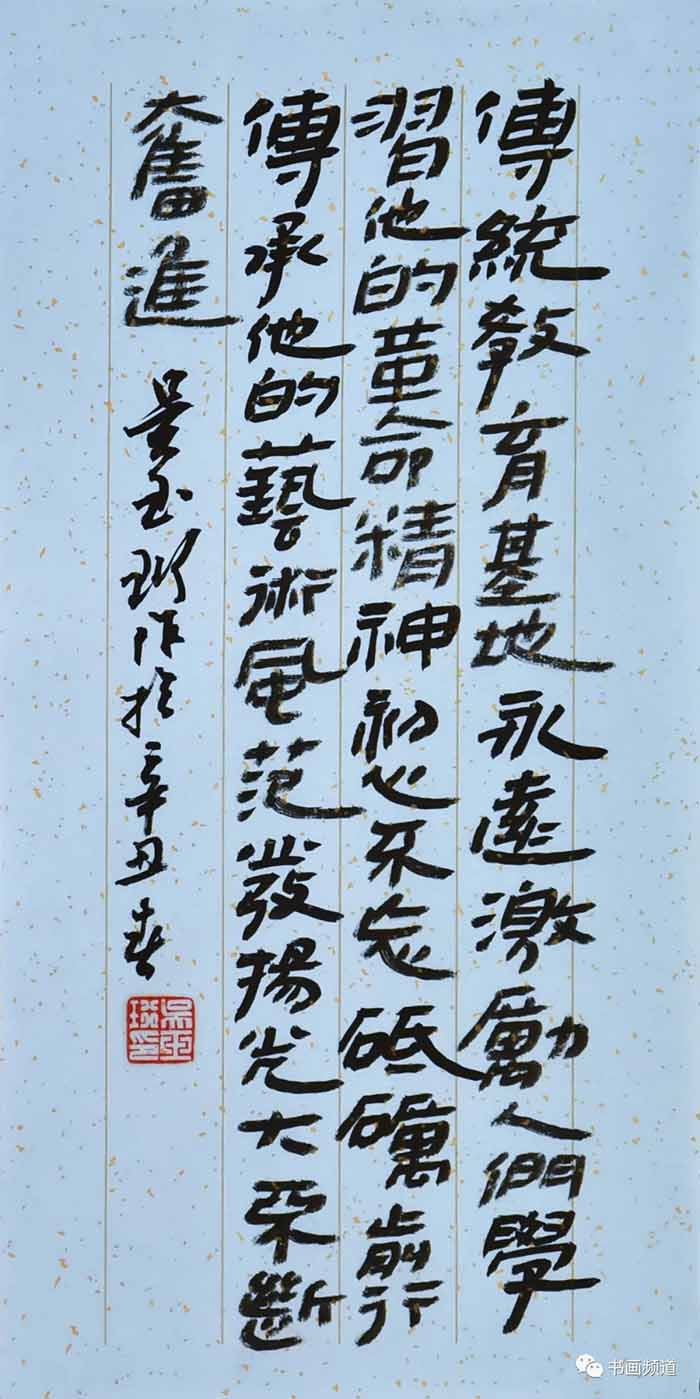 傳統教育基地永遠激勵人們學
習他的革命精神初心不忘砥礪前行
傳承他的藝術風范發揚光大不斷
奮進
吴玉珎作於辛丑春
书画频道